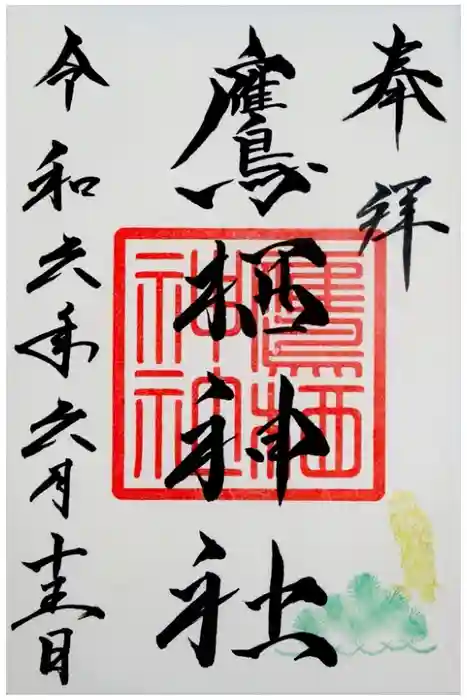 奉拝
鷹栖神社
令和六年六月十五日
鷹栖
神社